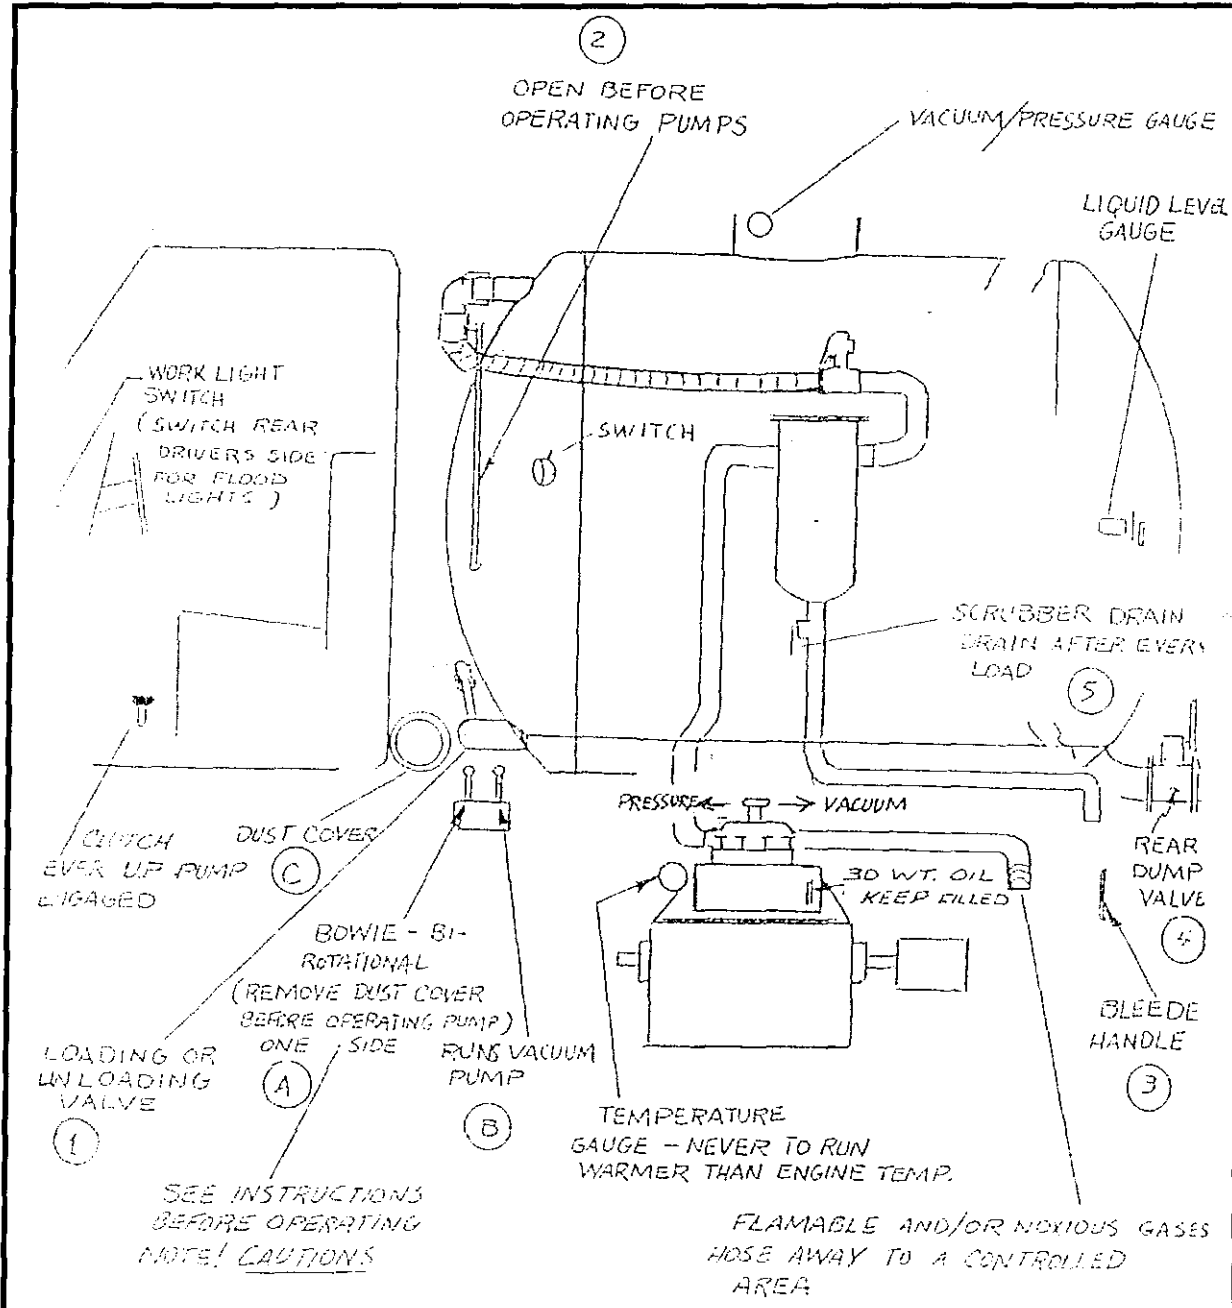 2
OPEN BEFORE
OPERATING PUMPS
VACUUM/PRESSURE GAUGE
LIQUID LEVEL
GAUGE
WORK LIGHT
SWITCH
(SWITCH REAR
DRIVERS SIDE
FOR FLOOD
LIGHTS)
SWITCH
SCRUBBER DRAIN
DRAIN AFTER EVERY
LOAD
5
PRESSURE
VACUUM
CLUTCH
EVER UP PUMP
ENGAGED
DUST COVER
C
30 WT. OIL
KEEP FILLED
REAR
DUMP
VALVE
4
BOWIE - BI-
ROTATIONAL
(REMOVE DUST COVER
BEFORE OPERATING PUMP)
ONE SIDE
A
LOADING OR
UNLOADING
VALVE
1
RUNS VACUUM
PUMP
B
BLEEDE
HANDLE
3
TEMPERATURE
GAUGE - NEVER TO RUN
WARMER THAN ENGINE TEMP.
SEE INSTRUCTIONS
BEFORE OPERATING
NOTE! CAUTIONS
FLAMABLE AND/OR NOXIOUS GASES
HOSE AWAY TO A CONTROLLED
AREA